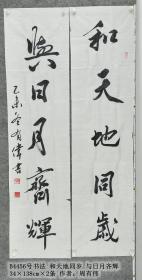 和天地同歲
與日月齊輝
乙未冬有偉書
B4456号书法 和天地同岁/与日月齐辉
34×138cm×2条 作者：周有伟